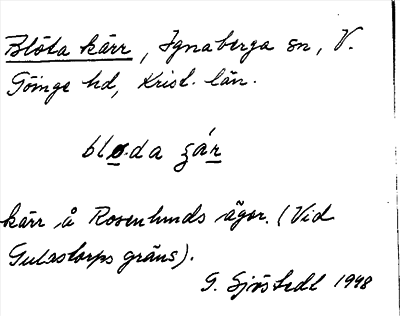 Blöta kärr, Ignaberga sn, V.
Göinge hd, Krist. län.
blø.da ʒár
kärr å Rosenlunds ägor. (Vid
Gulastorps gräns).
G. Sjöstedt 1948